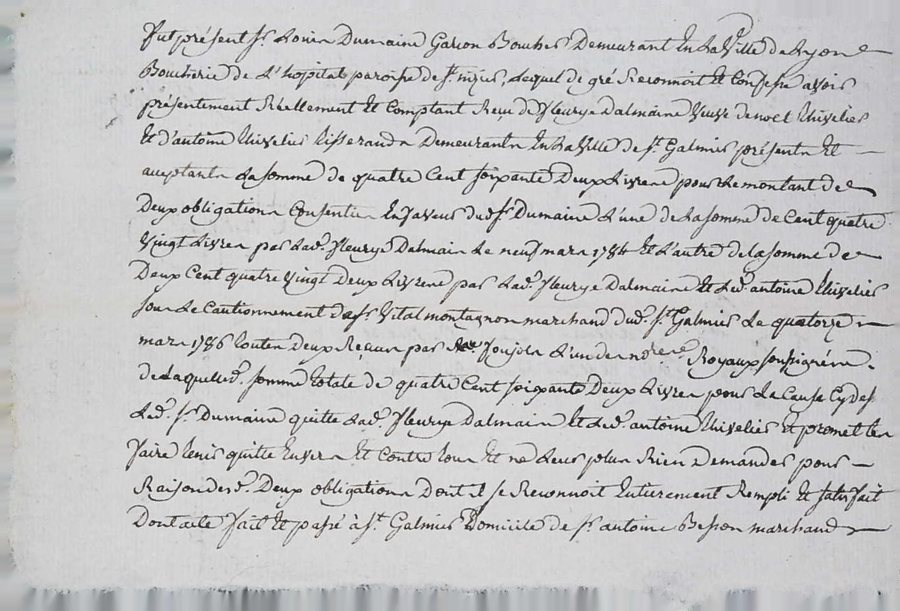 fut présent Sr. Louis Dumaine Garcon Boucher Demeurant En La Ville de Lyon
Boucherie de L'hopital paroisse de St. nizier, Lequel de gré Reconnoit Et Confesse avoir
présentement Réellement Et Comptant Reçu de fleurye Dalmaine Veuve de noel Thivelier
Et d'antoine Thivelier Tisserands Demeurants En La Ville de St. Galmier présents Et
acceptants La somme de quatre Cent soixante Deux Livres pour Le montant de
Deux obligations Consenties En faveur dud. Sr. Dumaine L'une de La somme de Cent quatre
Vingt Livres par Lad. fleurye Dalmain Le neuf mars 1784 Et L'autre de la somme de
Deux Cent quatre Vingt Deux Livres par Lad. fleurye Dalmaine Et Led. antoine Thivelier
sous Le Cautionnement de Sr. Vital montagnon marchand dud. St. Galmier Le quatorze
mars 1786 toutes Deux Reçues par L'un des nores. Royaux soussignés
de Laquelle d. somme totale de quatre Cent soixante Deux Livres pour La Cause Cy des
Led. Sr. Dumaine quitte Lad. fleurye Dalmain Et Led. antoine Thivelier Et promet les
faire tenir quitte Envers Et Contre tous Et ne Leur plus Rien Demander pour
Raison des d. Deux obligations Dont il se Reconnoit Entierement Rempli Et satisfait
Dont acte fait Et passé à St. Galmier Domicile de Sr. antoine Besson marchand